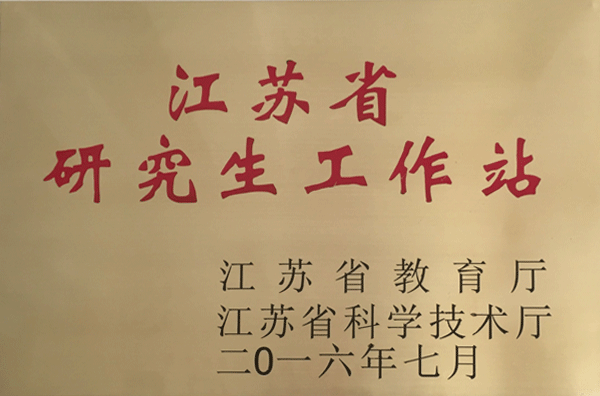 江苏省
研究生工作站
江苏省教育厅
江苏省科学技术厅
二0一六年七月